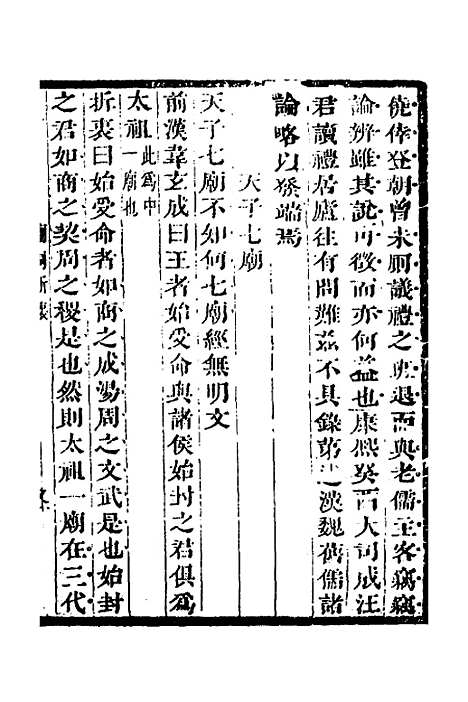 僥倖登朝曾未厠議禮之班退而與老儒主客竊竊
論辨雖其說可徵而亦何益也康熙癸酉大司成汪
君讀禮居廬往有問難茲不具錄第述漢魏舊儒諸
論略以發端焉
天子七廟
天子七廟不如何七廟經無明文
前漢韋玄成曰王者始受命與諸侯始封之君俱爲
太祖此爲中一廟也
折衷曰始受命者如商之成湯周之文武是也始封
之君如商之契周之稷是也然則太祖一廟在三代